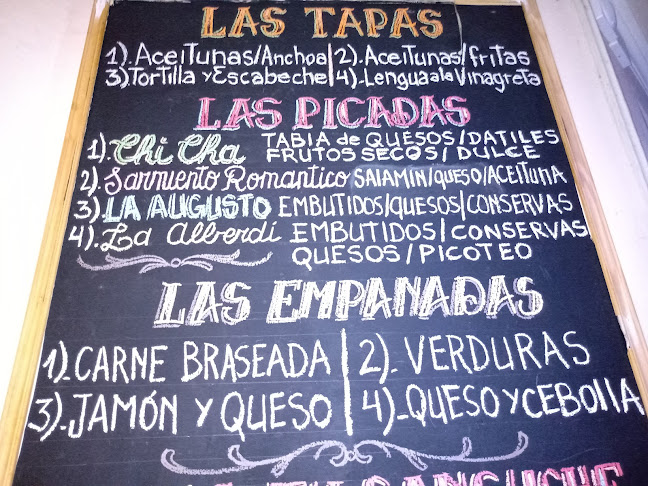 LAS TAPAS
1). Aceitunas/Anchoa | 2). Aceitunas/fritas
3). Tortilla y Escabeche | 4). Lengua a la Vinagreta
LAS PICADAS
1). Chi Cha TABLA de QUESOS/DATILES
FRUTOS SECOS/DULCE
2). Sarmiento Romantico SALAMIN/QUESO/ACEITUNA
3). LA AUGUSTO EMBUTIDOS/QUESOS/CONSERVAS
4). La Alberdi EMBUTIDOS/CONSERVAS
QUESOS/PICOTEO
LAS EMPANADAS
1)_ CARNE BRASEADA | 2)_ VERDURAS
3)_ JAMÓN Y QUESO | 4)_ QUESO Y CEBOLLA